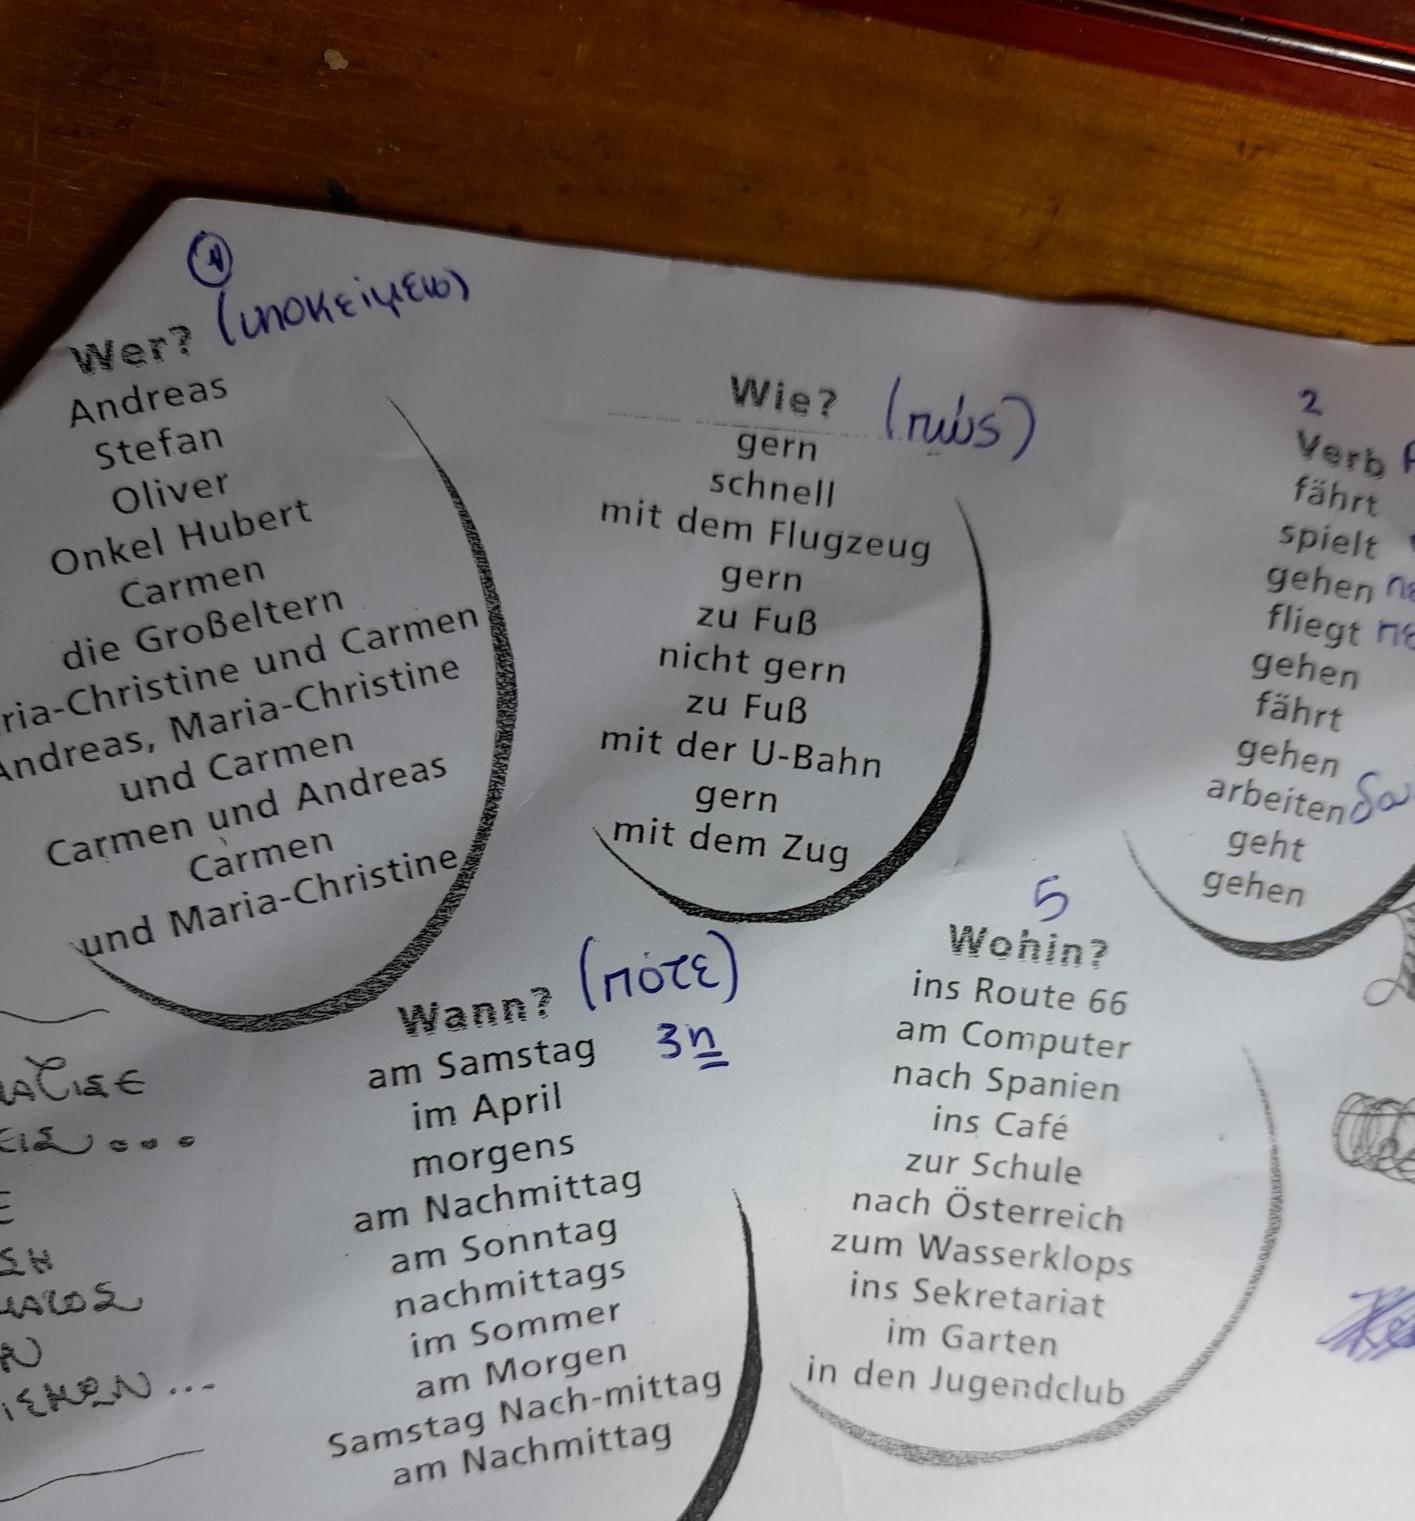 1
(υποκείμενο)
Wer?
Andreas
Stefan
Oliver
Onkel Hubert
Carmen
die Großeltern
ria-Christine und Carmen
Andreas, Maria-Christine
und Carmen
Carmen und Andreas
Carmen
und Maria-Christine
Wie? (πώς)
gern
schnell
mit dem Flugzeug
gern
zu Fuß
nicht gern
zu Fuß
mit der U-Bahn
gern
mit dem Zug
2
Verb
fährt
spielt
gehen
fliegt
gehen
fährt
gehen
arbeiten
geht
gehen
Wann? (πότε)
3η
am Samstag
im April
morgens
am Nachmittag
am Sonntag
nachmittags
im Sommer
am Morgen
Samstag Nach-mittag
am Nachmittag
5
Wohin?
ins Route 66
am Computer
nach Spanien
ins Café
zur Schule
nach Österreich
zum Wasserklops
ins Sekretariat
im Garten
in den Jugendclub